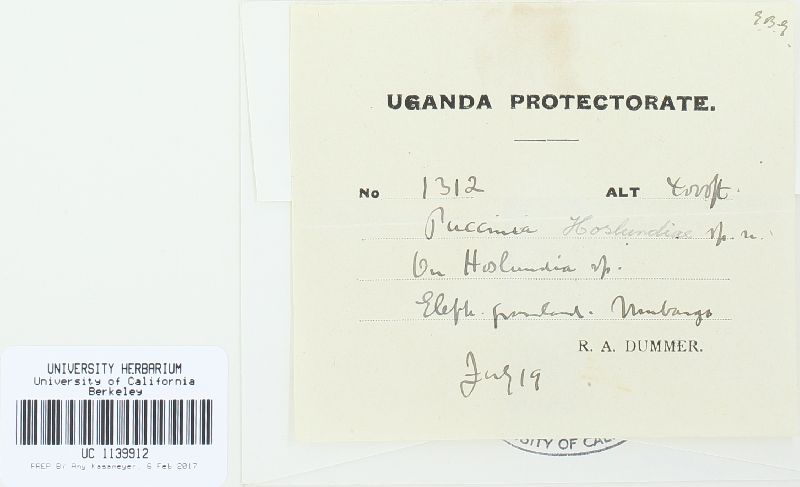 E.B.G.
UGANDA PROTECTORATE.
No 1312 ALT 4000ft.
Puccinia Hoslundiae sp. n.
On Hoslundia sp.
Eleph. grassland.
R. A. DUMMER.
July 19
UNIVERSITY HERBARIUM
University of California
Berkeley
UC 1139912
PREP BY Amy Kasameyer, 6 Feb 2017
SITY OF CAL